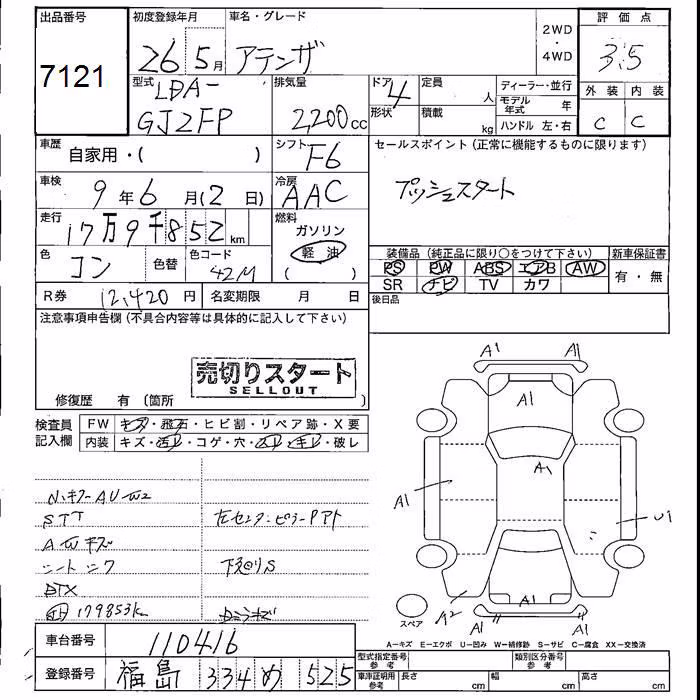 出品番号 初度登録年月 車名・グレード 2WD・4WD 評価点
7121 26 5月 アテンザ 3.5
型式 LDA- 排気量 ドア 定員 人 ディーラー・並行 外装 内装
GJ2FP 2200cc 4 形状 積載 kg モデル年式 年 C C
ハンドル 左・右
車歴 自家用・( ) シフト F6 セールスポイント (正常に機能するものに限ります)
車検 9年6月(2日) 冷房 AAC プッシュスタート
走行 17万9千852km 燃料 ガソリン
軽油
( )
色 コン 色替 色コード 42M
装備品 (純正品に限り○をつけて下さい) 新車保証書
PS PW ABS エアB AW 有・無
SR ナビ TV カワ
R券 12,420円 名変期限 月 日 後日品
注意事項申告欄 (不具合内容等は具体的に記入して下さい)
売切りスタート
SELLOUT
修復歴 有 (箇所 )
検査員 FW キズ・飛石・ヒビ割・リペア跡・X要
記入欄 内装 キズ・汚レ・コゲ・穴・スレ・キレ・破レ
STT
左センターピラーPアト
AWキズ
下廻りS
179853k
A1 A1
A1
A1
A1
U1
A2
A1 A1
スペア
A=キズ E=エクボ U=凹み W=補修跡 S=サビ C=腐食 XX=交換済
車台番号 110416
型式指定番号 参考 類別区分番号 参考
登録番号 福島 334 め 525
車庫証明用 参考 長さ cm 幅 cm 高さ cm